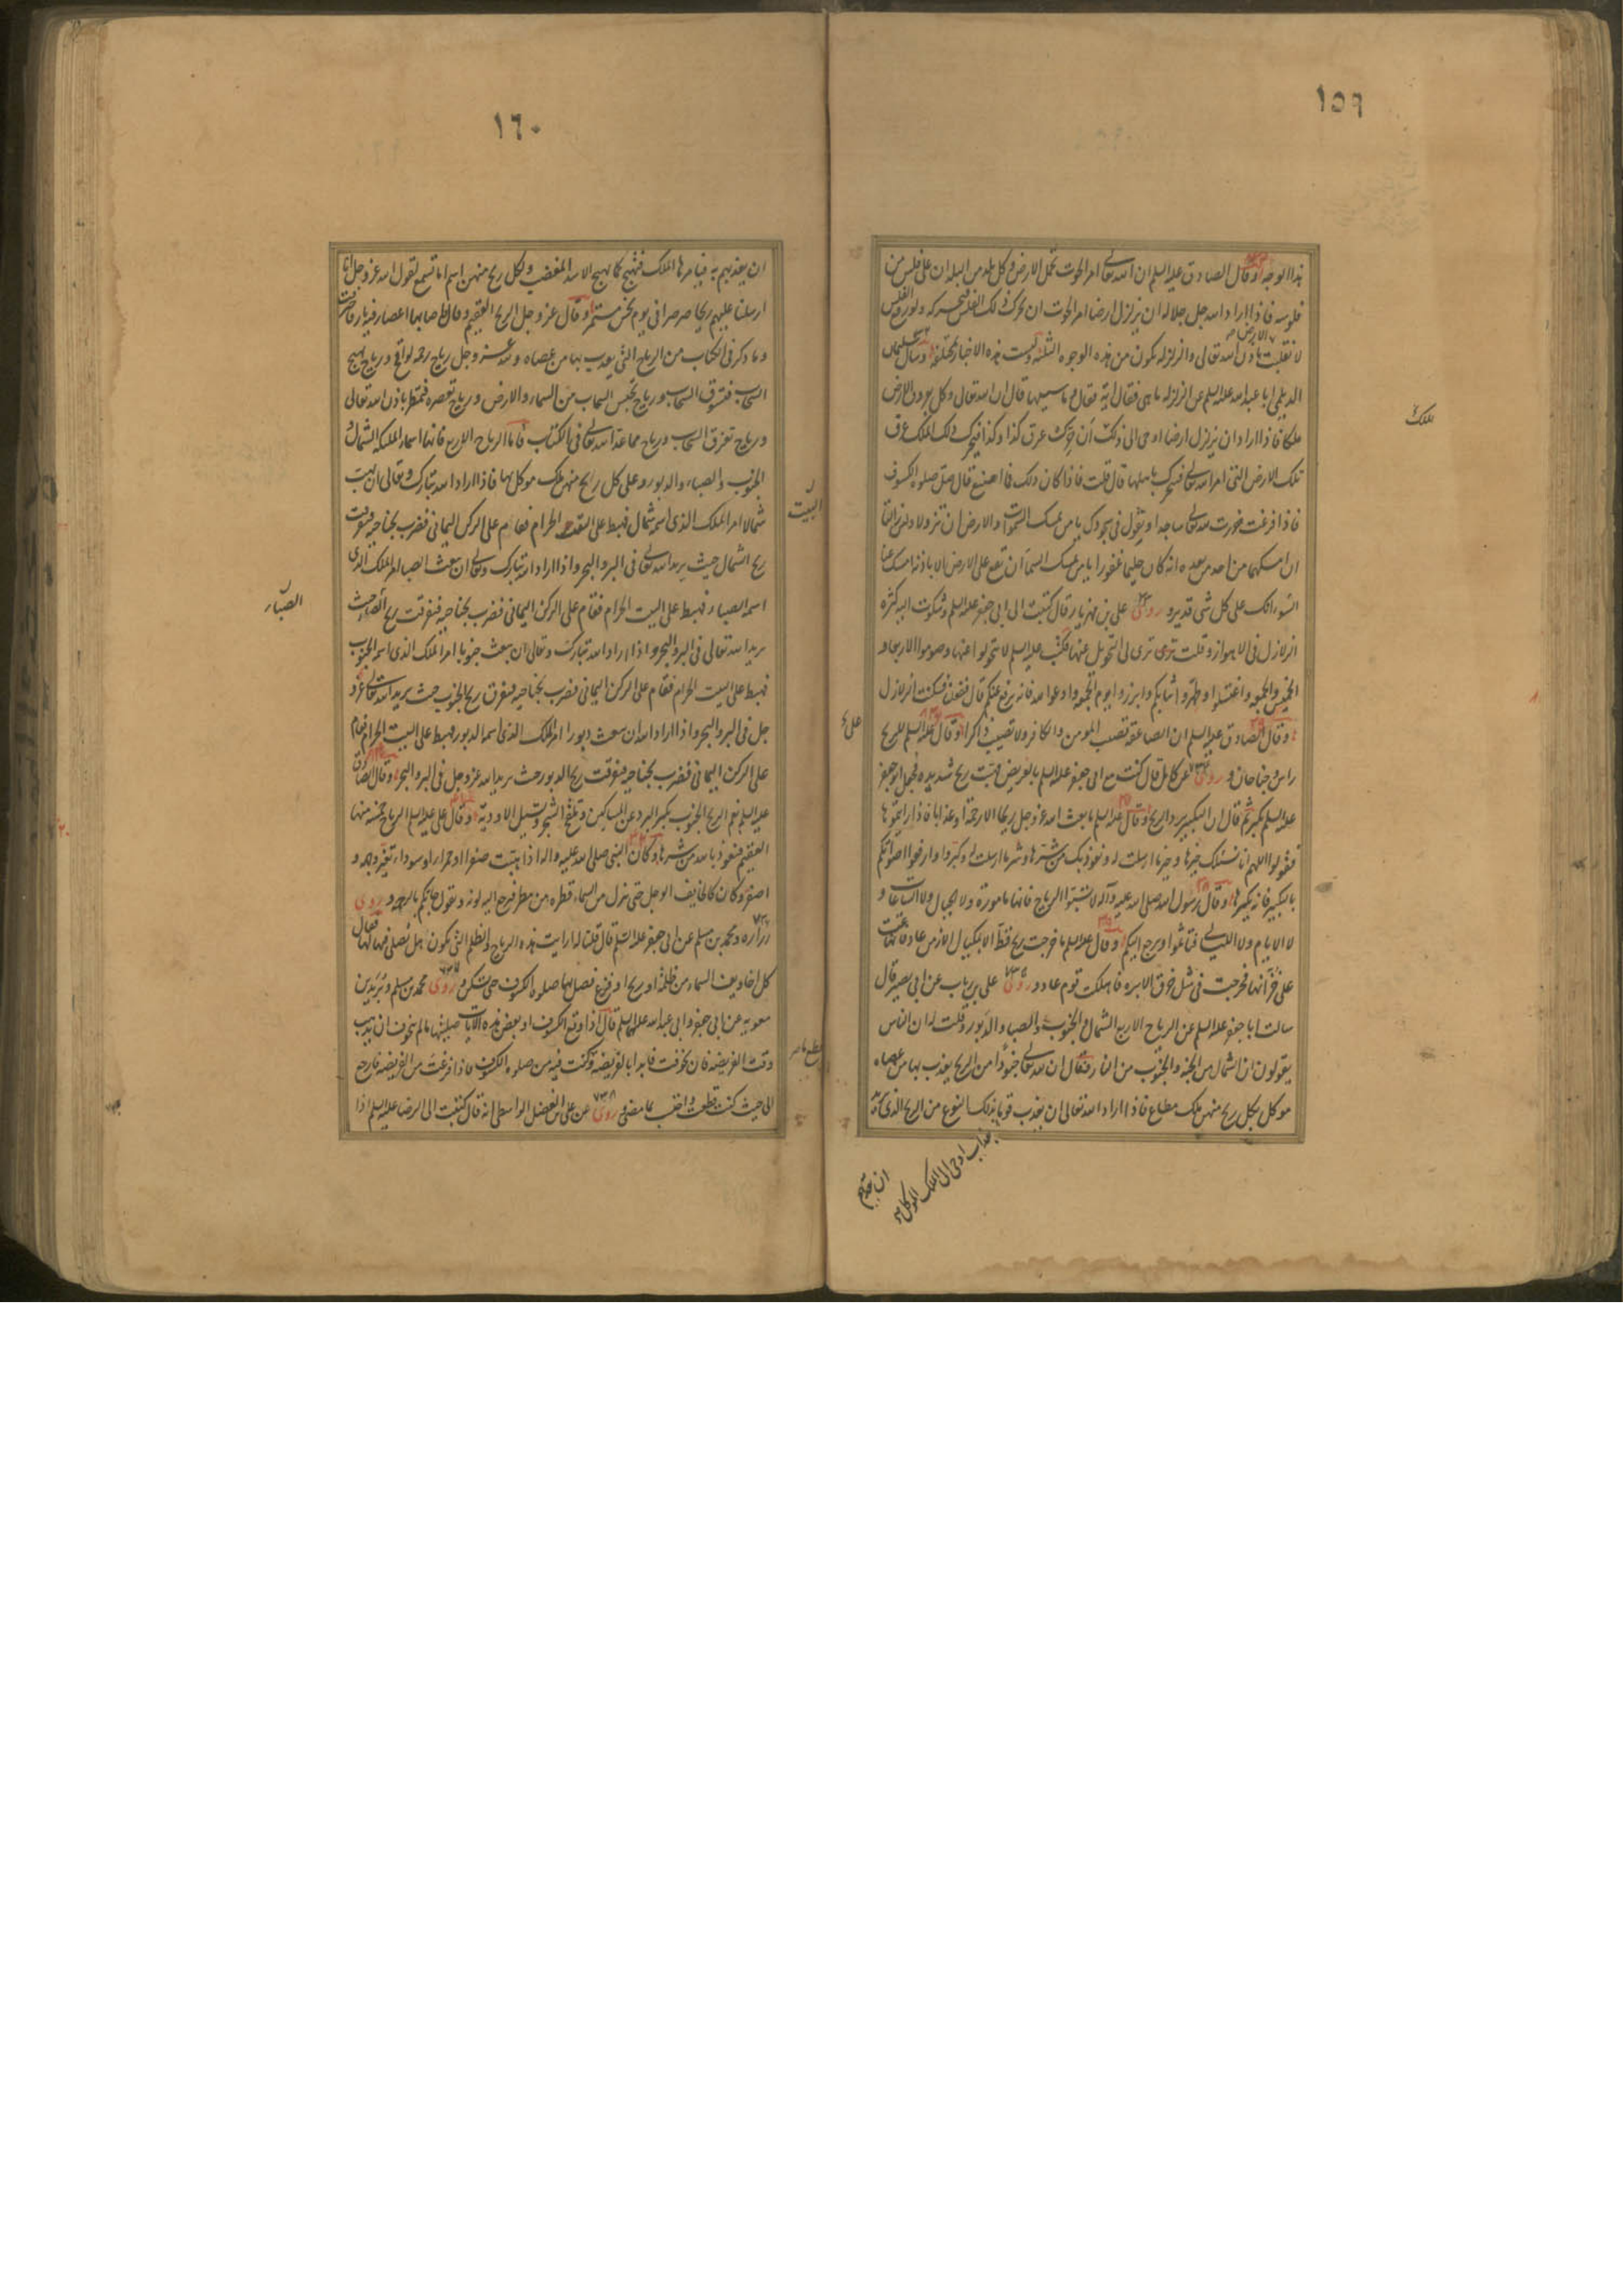 ١٥٩
هذا الوجه وقال الصادق عليه السلم ان الله تعالى امر الحوت تحمل الارض وكل بلد من البلدان على فلس من
فلوسه فاذا اراد الله جل جلاله ان يزلزل ارضا امر الحوت ان يحرك ذلك الفلس فيحركه ولو رفع الفلس
لانقلبت الارض باذن الله تعالى والزلزلة تكون من هذه الوجوه الثلثة وليست هذه الاخبار بمختلفة وسال سليمان
الديلمى ابا عبد الله عليه السلم عن الزلزلة ما هى فقال اية فقال وما سببها قال ان الله تعالى وكل بعروق الارض
ملكا فاذا اراد ان يزلزل ارضا اوحى الى ذلك ان حرك عرق كذا وكذا فيحرك ذلك الملك عرق
ملك
تلك الارض التى امر الله تعالى فتحرك باهلها قال قلت فاذا كان ذلك فما اصنع قال صل صلوة الكسوف
فاذا فرغت خررت لله تعالى ساجدا وتقول فى سجودك يا من يمسك السموات والارض ان تزولا ولئن زالتا
ان امسكهما من احد من بعده انه كان حليما غفورا يا من يمسك السماء ان تقع على الارض الا باذنه امسك عنا
السوء انك على كل شى قدير و روى على بن مهزيار قال كتبت الى ابى جعفر عليه السلم وشكوت اليه كثرة
الزلازل فى الاهواز وقلت ترى لى التحويل عنها فكتب عليه السلم لا تتحولوا عنها وصوموا الاربعاء و
الخميس والجمعه واغتسلوا وطهروا ثيابكم وابرزوا يوم الجمعه وادعوا الله فانه يرفع عنكم قال ففعلنا فسكنت الزلازل
وقال الصادق عليه السلم ان الصاعقه تصيب المومن والكافر ولا تصيب ذاكرا وقال على عليه السلم للريح
على ع
راس وجناحان و روى عن كامل قال كنت مع ابى جعفر عليه السلم بالعريض فهبت ريح شديده فجعل ابو جعفر
عليه السلم يكبر ثم قال ان التكبير يرد الريح وقال عليه السلم ما بعث الله عز وجل ريحا الا رحمة او عذابا فاذا رايتموها
فقولوا اللهم انا نسئلك خيرها وخير ما ارسلت له ونعوذ بك من شرها وشر ما ارسلت له وكبروا وارفعوا اصواتكم
بالتكبير فانه يكسرها وقال رسول الله صلى الله عليه وآله لا تسبوا الرياح فانها مامورة ولا الجبال ولا الساعات و
لا الايام ولا الليالى فتاثموا ويرجع اليكم وقال عليه السلم ما خرجت ريح قط الا بمكيال الا زمن عاد فانها عتت
على خزانها فخرجت فى مثل خرق الابرة فاهلكت قوم عاد و روى على بن رياب عن ابى بصير قال
سالت ابا جعفر عليه السلم عن الرياح الاربع الشمال والجنوب والصبا والدبور وقلت له ان الناس
يقولون ان الشمال من الجنه والجنوب من النار فقال ان لله تعالى جنودا من الريح يعذب بها من عصاه
موكل بكل ريح منهن ملك مطاع فاذا اراد الله تعالى ان يعذب قوما بذلك النوع من الريح الذى
بعذاب اوحى الى الملك الموكل
ان يعذبهم
١٦٠
ان يعذبهم به فيامرها الملك فتهيج كما يهيج الاسد المغضب ولكل ريح منهن اسم اما تسمع لقول الله عز وجل انا
ارسلنا عليهم ريحا صرصرا فى يوم نحس مستمر وقال عز وجل الريح العقيم وقال فاصابها اعصار فيه نار فاحترقت
وما ذكر فى الكتاب من الرياح التى يعذب بها من عصاه ولله عز وجل رياح رحمه لواقح ورياح تهيج
السحاب فتسوق السحاب ورياح تحبس السحاب من السماء والارض ورياح تعصره فتمطر باذن الله تعالى
ورياح تفرق السحاب ورياح مما عد الله تعالى فى الكتاب فاما الرياح الاربع فانها اسماء الملئكه الشمال و
الجنوب والصباء والدبور وعلى كل ريح منهن ملك موكل بها فاذا اراد الله تبارك وتعالى ان يهب
البيت
شمالا امر الملك الذى اسمه شمال فهبط على الحرام فقام على الركن اليمانى فضرب بجناحيه فتفرقت
ريح الشمال حيث يريد الله تعالى فى البر والبحر واذا اراد الله تبارك وتعالى ان يبعث الصبا امر الملك الذى
اسمه الصباء فهبط على البيت الحرام فقام على الركن اليمانى فضرب بجناحيه فتفرقت ريح الصبا حيث
الصباء
يريد الله تعالى فى البر والبحر واذا اراد الله تبارك وتعالى ان يبعث جنوبا امر الملك الذى اسمه الجنوب
فهبط على البيت الحرام فقام على الركن اليمانى فضرب بجناحيه فتفرق ريح الجنوب حيث يريد الله تعالى عز و
جل فى البر والبحر واذا اراد الله ان يبعث دبورا امر الملك الذى اسمه الدبور فهبط على البيت الحرام فقام
على الركن اليمانى فضرب بجناحيه فتفرقت ريح الدبور حيث يريد الله عز وجل فى البر والبحر وقال الصادق
عليه السلم نعم الريح الجنوب تكسر البرد عن المساكين وتلقح الشجر وتسيل الاودية وقال على عليه السلم الرياح خمسة منها
العقيم فنعوذ بالله من شرها وكان النبى صلى الله عليه واله اذا هبت صفراء او حمراء او سوداء تغير وجهه و
اصفر وكان كالخايف الوجل حتى ينزل من السماء قطره من مطر فيرجع اليه لونه ويقول جاءتكم بالرحمه و روى
زرارة ومحمد بن مسلم عن ابى جعفر عليه السلم قال قلنا له ارايت هذه الرياح والظلم التى تكون هل يصلى لها فقال
كل اخاويف السماء من ظلمة او ريح او فزع فصل لها صلوة الكسوف حتى تسكن و روى محمد بن مسلم وبريد بن
معويه عن ابى جعفر وابى عبد الله عليهما السلم قال اذا وقع الكسوف او بعض هذه الايات صليتها ما لم تتخوف ان يذهب
وقت الفريضه فان تخوفت فابدا بالفريضة واقطع ما كنت فيه من صلوة الكسوف فاذا فرغت من الفريضه فارجع
الى حيث كنت قطعت واحتسب بما مضى و روى ٧٣٨ عن على بن الفضل الواسطى انه قال كتبت الى الرضا عليه السلم اذا